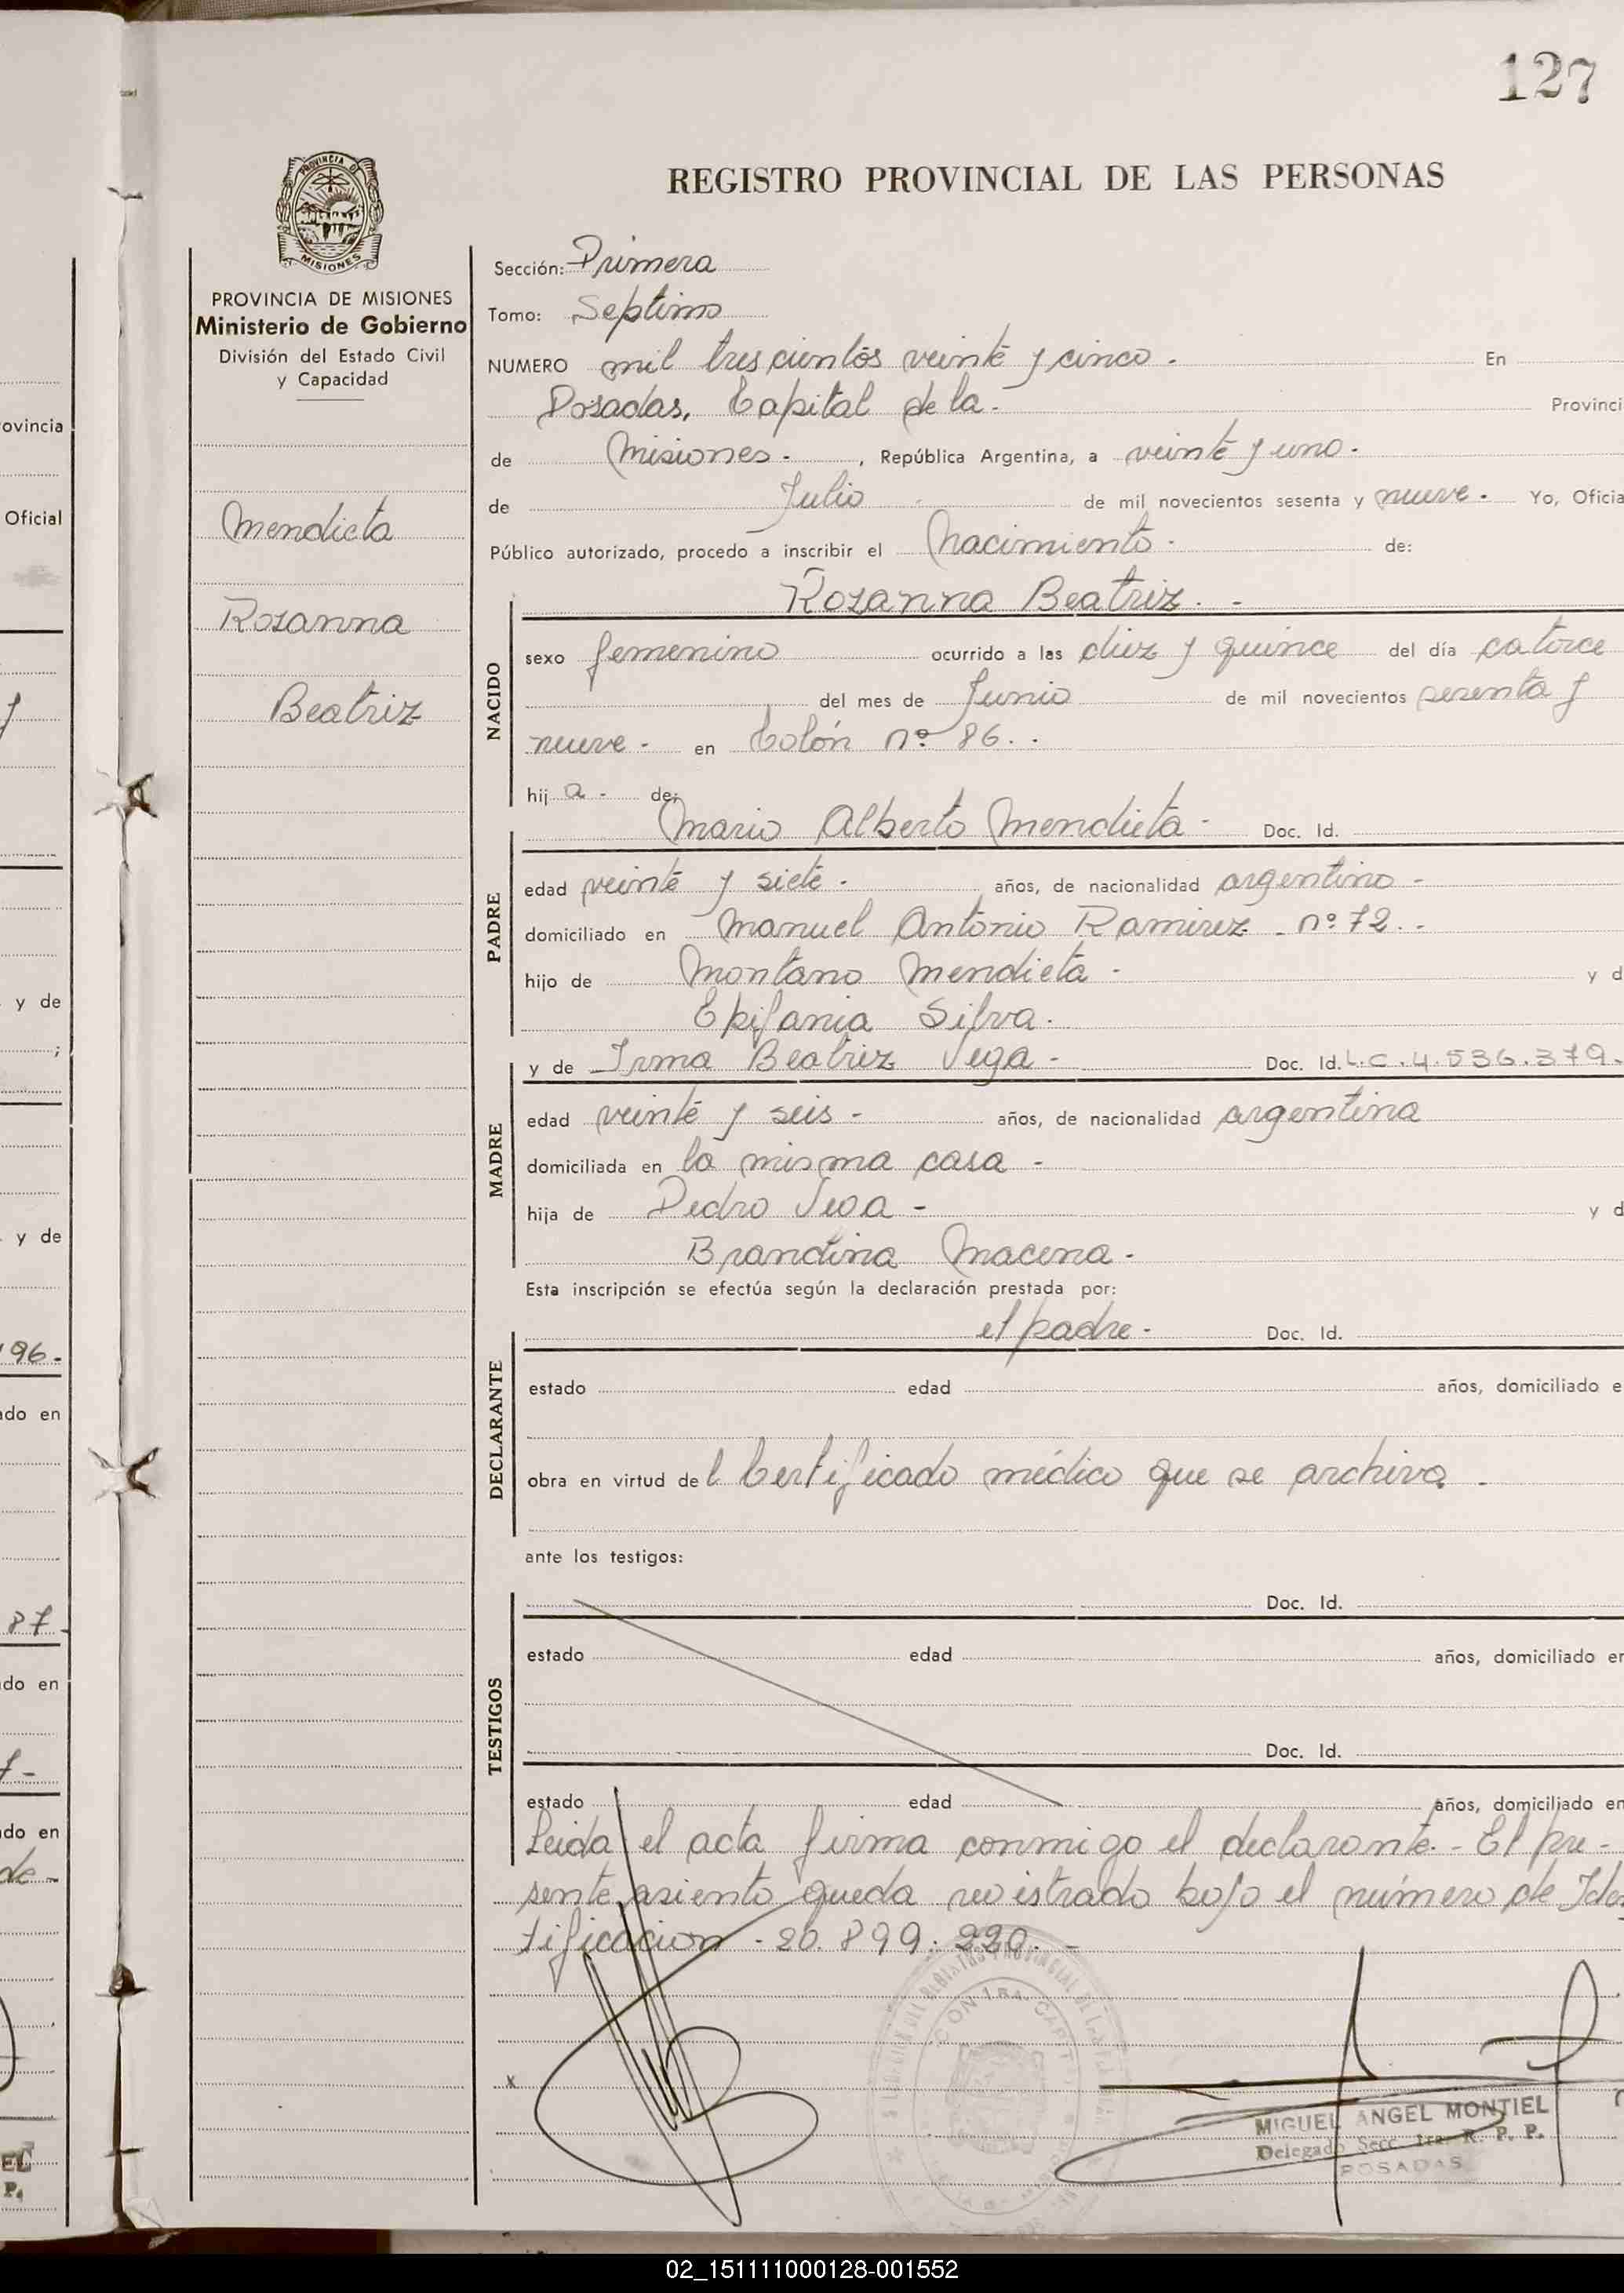 127
REGISTRO PROVINCIAL DE LAS PERSONAS
PROVINCIA DE MISIONES
Ministerio de Gobierno
División del Estado Civil
y Capacidad
Mendieta
Rosanna
Beatriz
Sección: Primera
Tomo: Septimo
NUMERO mil trescientos veinte y cinco - En
Posadas, Capital de la - Provinci
de Misiones - , República Argentina, a veinte y uno -
de Julio de mil novecientos sesenta y nueve - Yo, Oficia
Público autorizado, procedo a inscribir el Nacimiento - de:
Rosanna Beatriz. -
NACIDO
sexo femenino ocurrido a las diez y quince del día catorce
del mes de Junio de mil novecientos sesenta y
nueve - en Colón nº 86. -
hij a - de:
Mario Alberto Mendieta - Doc. Id.
PADRE
edad veinte y siete - años, de nacionalidad argentino -
domiciliado en Manuel Antonio Ramirez - nº 72. -
hijo de Montano Mendieta - y d
Epifania Silva.
y de Irma Beatriz Vega - Doc. Id. L.C. 4.536.379.-
MADRE
edad veinte y seis - años, de nacionalidad argentina
domiciliada en la misma casa -
hija de Pedro Vega - y d
Brandina Macena -
Esta inscripción se efectúa según la declaración prestada por:
el padre - Doc. Id.
DECLARANTE
estado edad años, domiciliado e
obra en virtud del Certificado médico que se archiva -
ante los testigos:
Doc. Id.
TESTIGOS
estado edad años, domiciliado en
Doc. Id.
estado edad años, domiciliado en
Leida el acta firma conmigo el declarante - El pre-
sente asiento queda registrado bajo el número de Iden
tificacion - 20.899.220. -
MIGUEL ANGEL MONTIEL
Delegado Secc. 1ra. R. P. P.
POSADAS
ovincia
Oficial
y de
;
y de
196-
ado en
87-
do en
7-
do en
de -
EL
P.
02_151111000128-001552